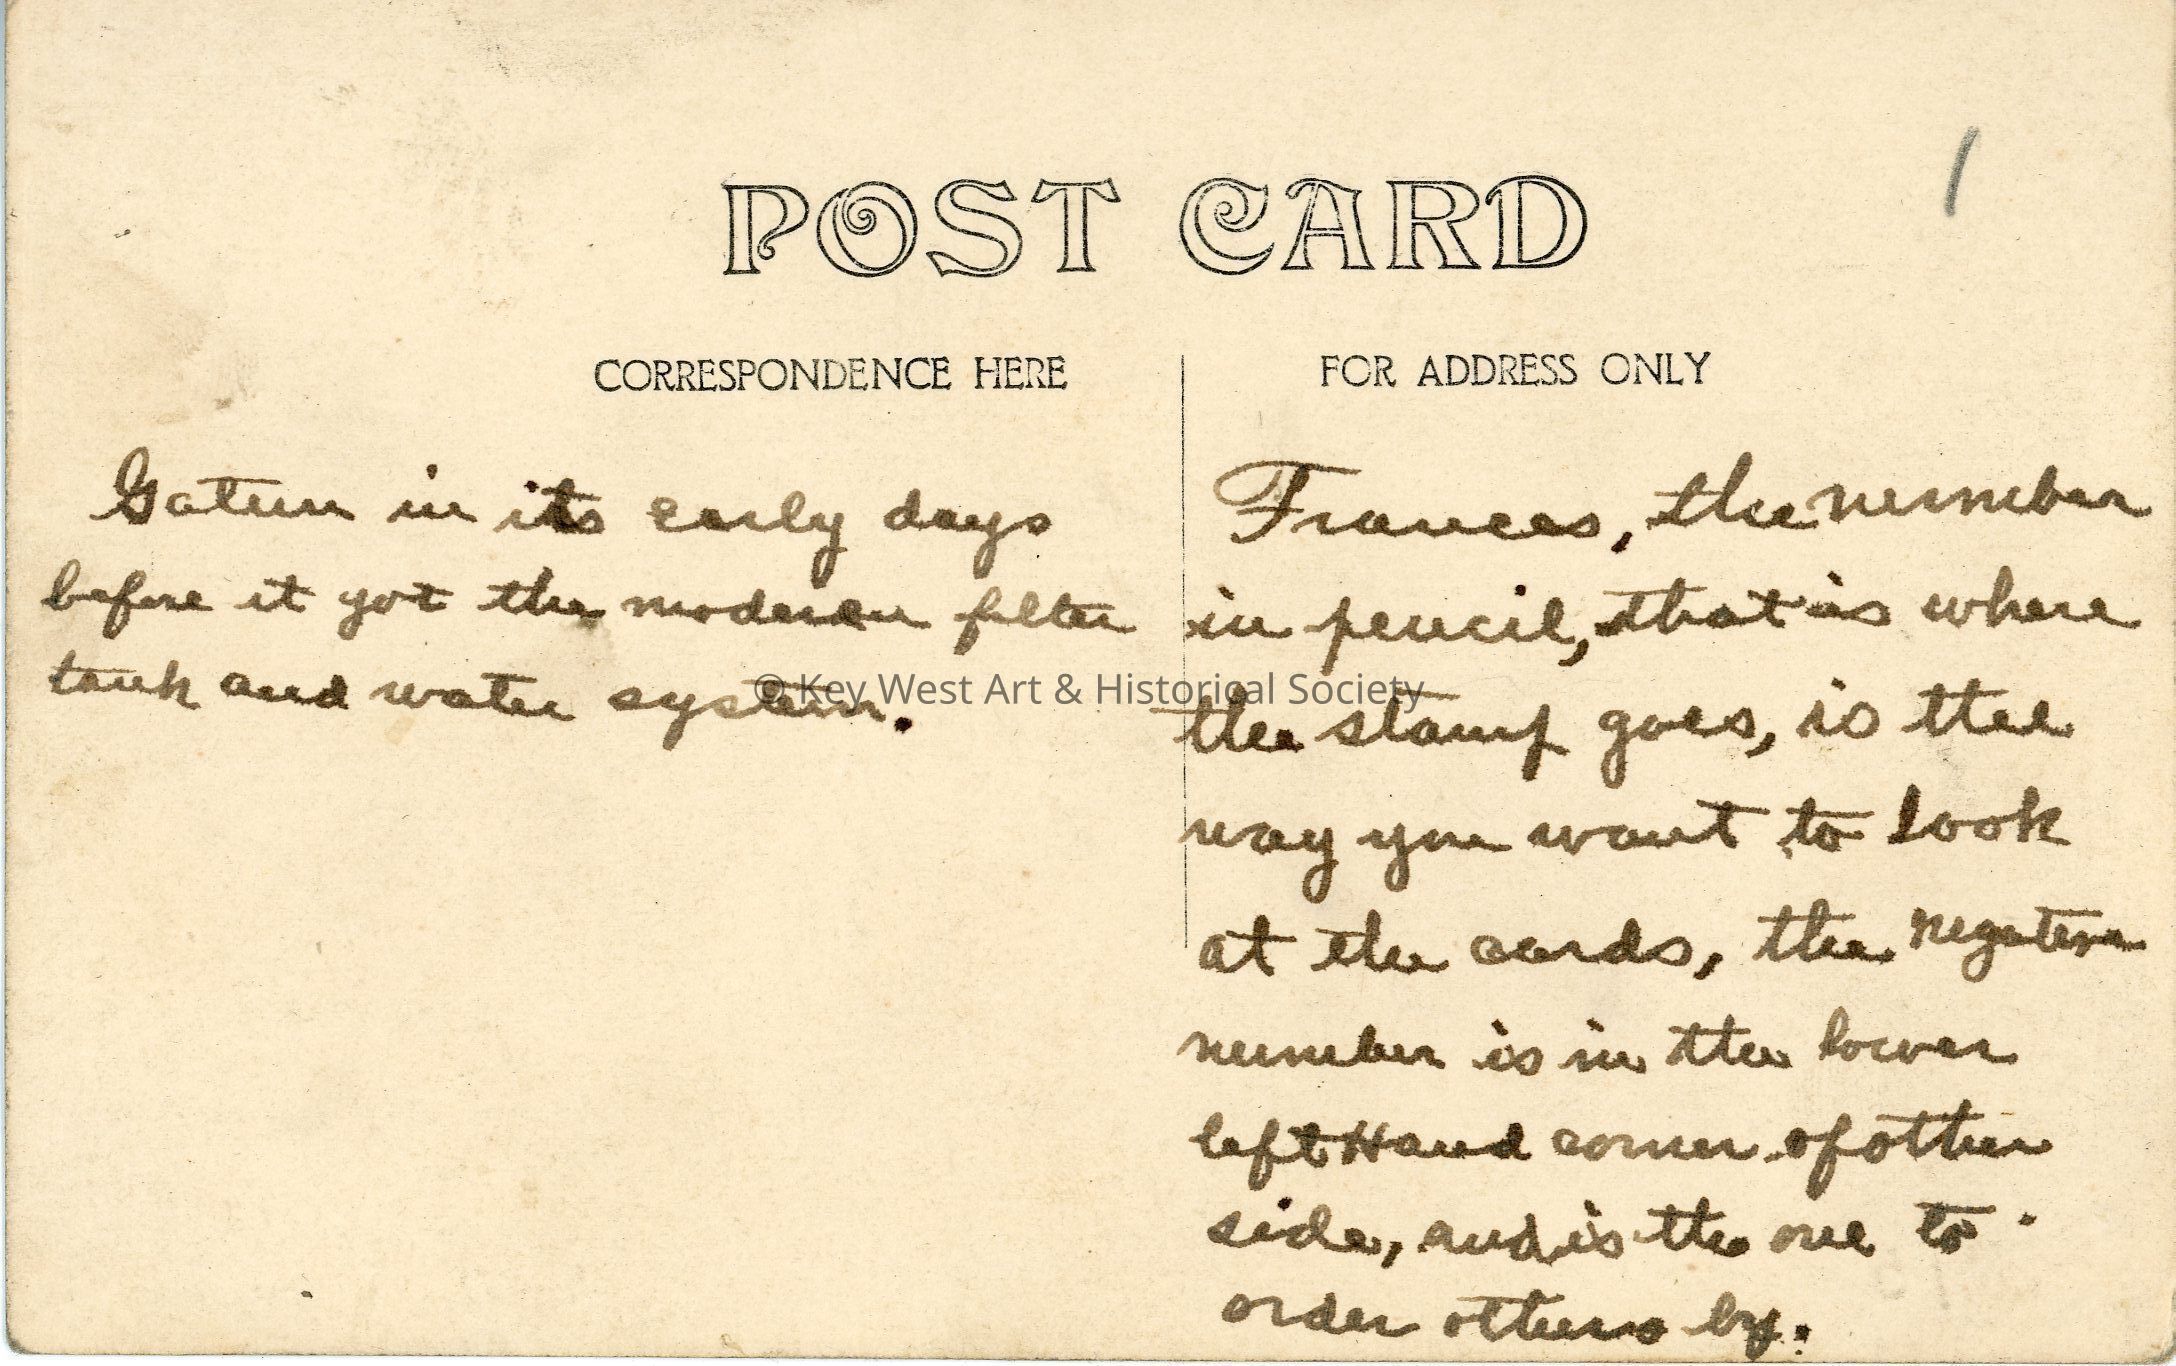 POST CARD
1
CORRESPONDENCE HERE
FOR ADDRESS ONLY
Gatun in its early days
before it got the modern filter
tank and water system.
Frances, the number
in pencil, that is where
the stamp goes, is the
way you want to look
at the cards, the negative
number is in the lower
left Hand corner of other
side, and is the one to
order others by.
© Key West Art & Historical Society